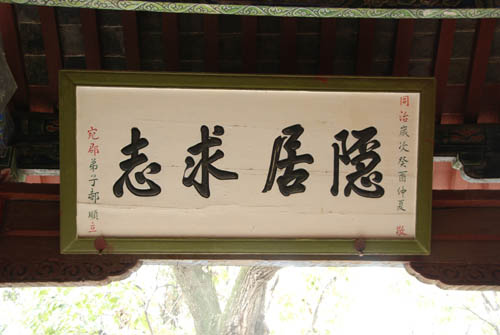 同治歲次癸酉仲夏 敬
隐居求志
宛郡弟子郝順立